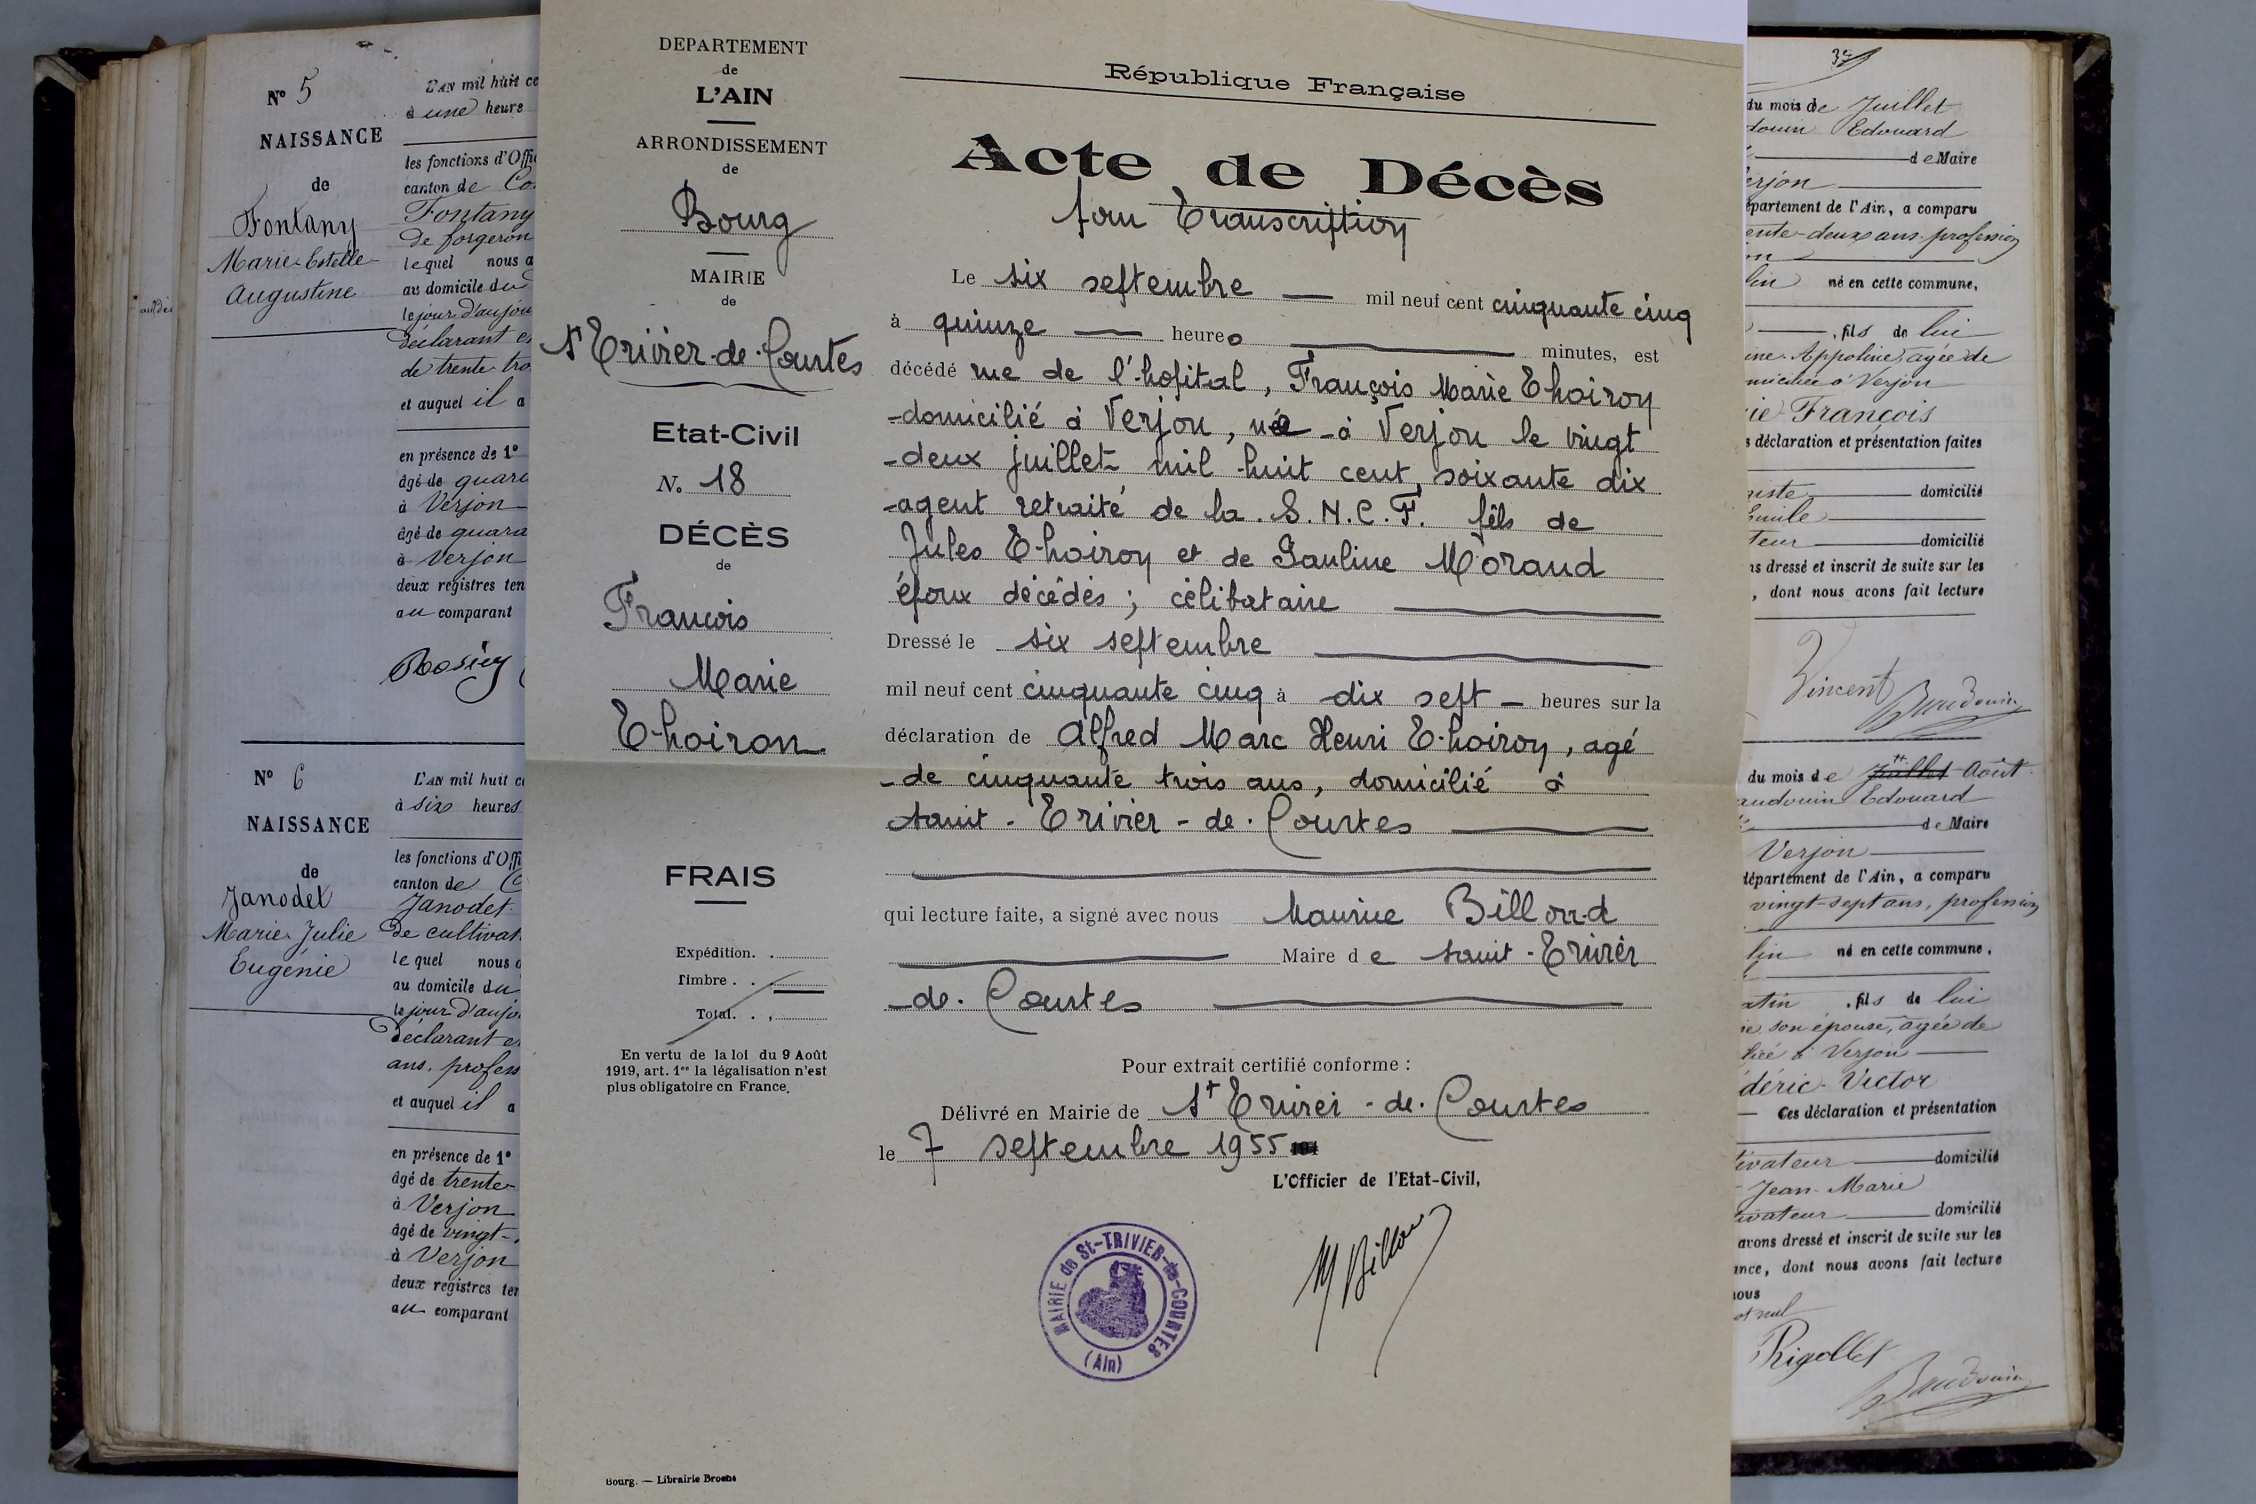 N° 5
NAISSANCE
de
Fontany
Marie Estelle
Augustine
L'AN mil huit ce
à une heure
les fonctions d'Offi
canton de Co
Fontany
de forgeron
lequel nous a
au domicile du
le jour d'aujou
déclarant e
de trente tro
et auquel il a
en présence de 1°
âgé de quara
à Verjon
âgé de quara
à Verjon
deux registres ten
au comparant
N° 6
NAISSANCE
de
Janodet
Marie Julie
Eugénie
L'AN mil huit c
à six heures
les fonctions d'Offi
canton de C
Janodet
de cultivat
lequel nous a
au domicile du
le jour d'aujo
déclarant e
ans, profess
et auquel il a
en présence de 1°
âgé de trente-
à Verjon
âgé de vingt-
à Verjon
deux registres ten
au comparant
DEPARTEMENT
de
L'AIN
ARRONDISSEMENT
de
Bourg
MAIRIE
de
St Trivier-de-Courtes
Etat-Civil
N° 18
DÉCÈS
de
François
Marie
Thoiron
FRAIS
Expédition. .
Timbre . .
Total. . .
En vertu de la loi du 9 Août
1919, art. 1er la légalisation n'est
plus obligatoire en France.
Bourg. — Librairie Broche
République Française
Acte de Décès
pour Transcription
Le six septembre — mil neuf cent cinquante cinq
à quinze — heures — minutes, est
décédé rue de l'hôpital, François Marie Thoiron
domicilié à Verjon, né à Verjon le vingt
deux juillet mil huit cent soixante dix
agent retraité de la S.N.C.F. fils de
Jules Thoiron et de Pauline Morand
époux décédés ; célibataire —
Dressé le six septembre —
mil neuf cent cinquante cinq à dix sept — heures sur la
déclaration de Alfred Marc Henri Thoiron, agé
de cinquante trois ans, domicilié à
Saint-Trivier-de-Courtes —
qui lecture faite, a signé avec nous Maurice Billoud
— Maire de Saint-Trivier
de-Courtes —
Pour extrait certifié conforme :
Délivré en Mairie de St Trivier-de-Courtes
le 7 septembre 1955 194
L'Officier de l'Etat-Civil,
M Billou
MAIRIE de St-TRIVIER-de-COURTES
(Ain)
du mois de Juillet
douin Edouard
de Maire
erjon
épartement de l'Ain, a comparu
ente-deux ans, profession
lin né en cette commune,
, fils de lui
ine Appoline, agée de
miciliée à Verjon
ie François
s déclaration et présentation faites
niste domicilié
Emile
teur domicilié
ns dressé et inscrit de suite sur les
, dont nous avons fait lecture
Vincent Baudouin
du mois de Juillet Août
audouin Edouard
de Maire
Verjon
département de l'Ain, a comparu
vingt-sept ans, profession
lin né en cette commune,
atin , fils de lui
ie, son épouse, agée de
liée à Verjon
déric Victor
Ces déclaration et présentation
tivateur domicilié
Jean-Marie
tivateur domicilié
avons dressé et inscrit de suite sur les
ance, dont nous avons fait lecture
nous
Rigollet
Baudouin